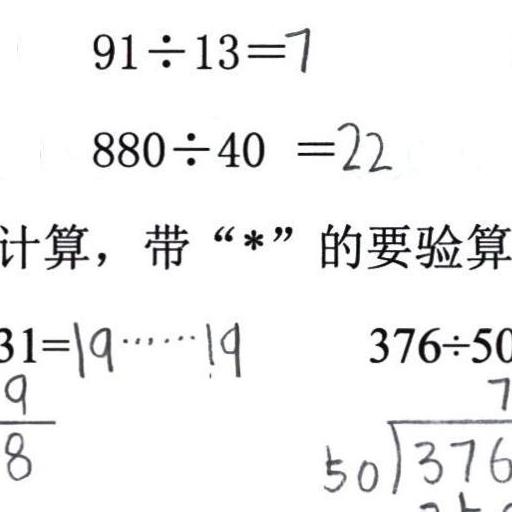 91÷13=7
880÷40 =22
计算，带“*”的要验算
31=19……19 376÷50
9 7
8 50)376